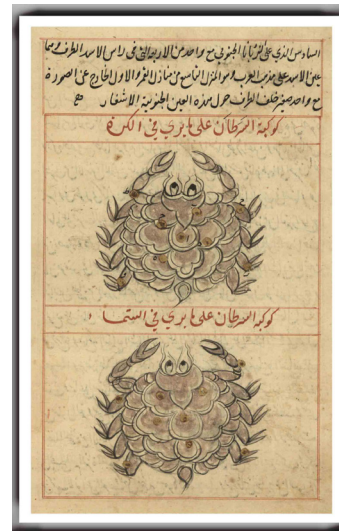 السادس الذي على الزبانا الجنوبي مع واحد من الاربعة التي في راس الاسد الطرف وهما
عين الاسد على مذهب العرب وهو المنزل التاسع من منازل القمر والاول الخارج عن الصورة
مع واحد صغير خلف الطرف حول هذه العين الجنوبية الاشفار
كوكبة السرطان على ما يرى في الكرة
كوكبة السرطان على ما يرى في السماء